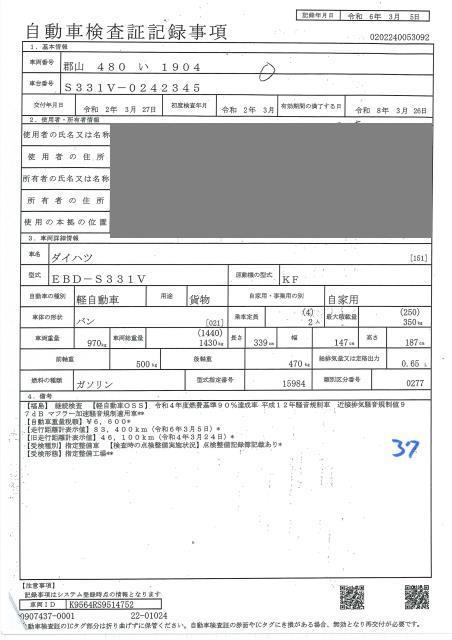 記録年月日 令和 6年 3月 5日
自動車検査証記録事項
0202240053092
1. 基本情報
車両番号 郡山 480 い 1904
車台番号 S331V-0242345
交付年月日 令和 2年 3月 27日 初度検査年月 令和 2年 3月 有効期間の満了する日 令和 8年 3月 26日
2. 使用者・所有者情報
使用者の氏名又は名称
使用者の住所
所有者の氏名又は名称
所有者の住所
使用の本拠の位置
3. 車両詳細情報
車名 ダイハツ [151]
型式 EBD-S331V 原動機の型式 KF
自動車の種別 軽自動車 用途 貨物 自家用・事業用の別 自家用
車体の形状 バン [021] 乗車定員 (4) 2人 最大積載量 (250) 350kg
車両重量 970kg 車両総重量 (1440) 1430kg 長さ 339cm 幅 147cm 高さ 187cm
前軸重 500kg 後軸重 470kg 総排気量又は定格出力 0.65 L
燃料の種類 ガソリン 型式指定番号 15984 類別区分番号 0277
4. 備考
【福島】 継続検査 【軽自動車OSS】 令和4年度燃費基準90%達成車 平成12年騒音規制車 近接排気騒音規制値9
7dB マフラー加速騒音規制適用車**
【自動車重量税額】¥6,600*
【走行距離計表示値】83,400km(令和6年3月5日)*
【旧走行距離計表示値】46,100km(令和4年3月24日)*
【受検種別】指定整備車 【検査時の点検整備実施状況】点検整備記録簿記載あり*
【受検形態】指定整備工場**
37
【注意事項】
記録事項はシステム登録時点の情報となります
車両ID K9564RS9514752
0907437-0001 22-01024
自動車検査証のICタグ部分は折り曲げずに保管ください。自動車検査証の券面やICタグにき損がある場合、無効となり再交付が必要です。